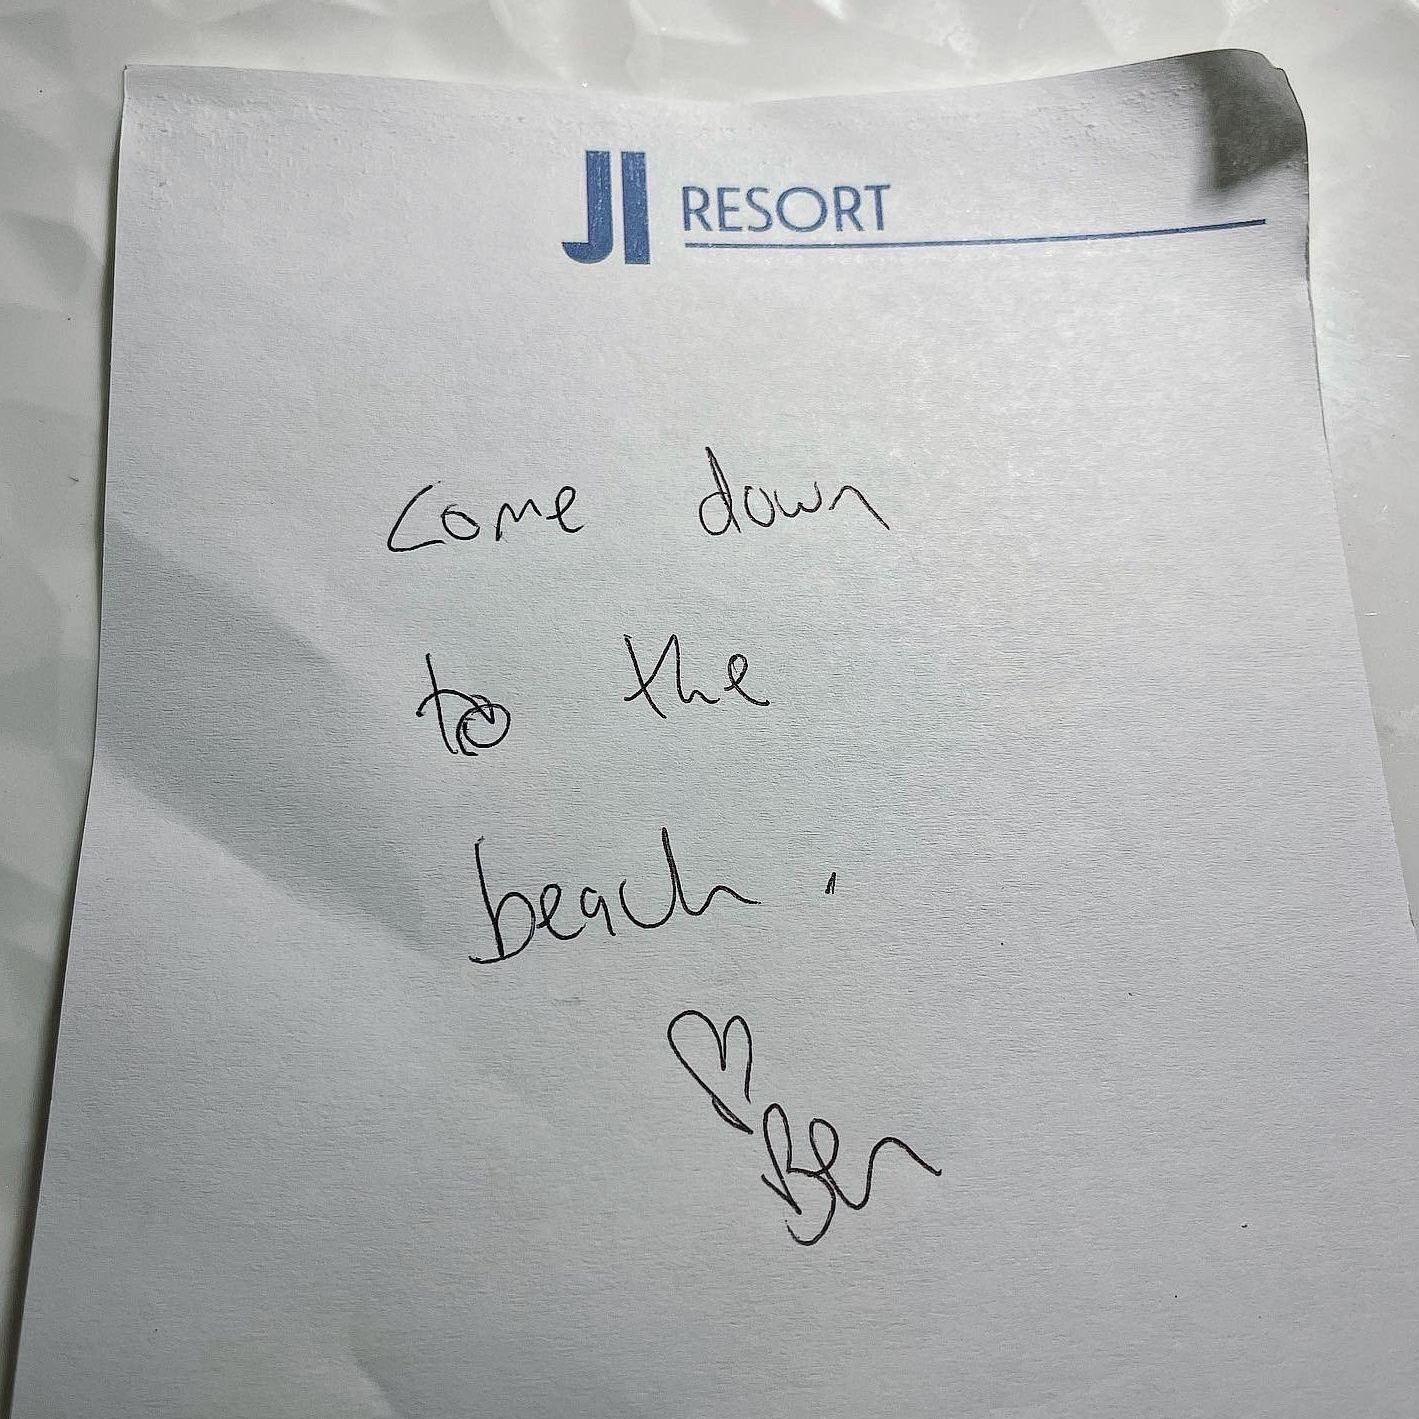 JI RESORT
come down
to the
beach.
♡ Ben